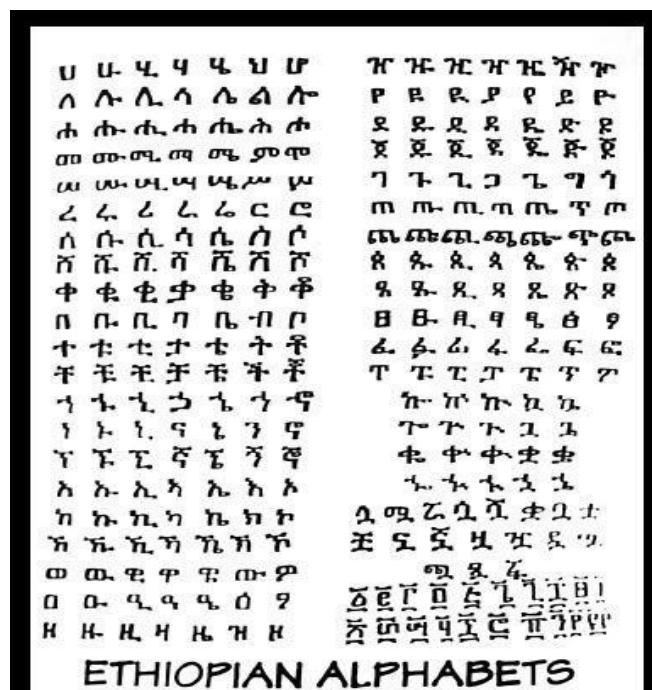 ሀ ሁ ሂ ሃ ሄ ህ ሆ
ለ ሉ ሊ ላ ሌ ል ሎ
ሐ ሑ ሒ ሓ ሔ ሕ ሖ
መ ሙ ሚ ማ ሜ ም ሞ
ሠ ሡ ሢ ሣ ሤ ሥ ሦ
ረ ሩ ሪ ራ ሬ ር ሮ
ሰ ሱ ሲ ሳ ሴ ስ ሶ
ሸ ሹ ሺ ሻ ሼ ሽ ሾ
ቀ ቁ ቂ ቃ ቄ ቅ ቆ
በ ቡ ቢ ባ ቤ ብ ቦ
ተ ቱ ቲ ታ ቴ ት ቶ
ቸ ቹ ቺ ቻ ቼ ች ቾ
ኀ ኁ ኂ ኃ ኄ ኅ ኆ
ነ ኑ ኒ ና ኔ ን ኖ
ኘ ኙ ኚ ኛ ኜ ኝ ኞ
አ ኡ ኢ ኣ ኤ እ ኦ
ከ ኩ ኪ ካ ኬ ክ ኮ
ኸ ኹ ኺ ኻ ኼ ኽ ኾ
ወ ዉ ዊ ዋ ዌ ው ዎ
ዐ ዑ ዒ ዓ ዔ ዕ ዖ
ዘ ዙ ዚ ዛ ዜ ዝ ዞ
ዠ ዡ ዢ ዣ ዤ ዥ ዦ
የ ዩ ዪ ያ ዬ ይ ዮ
ደ ዱ ዲ ዳ ዴ ድ ዶ
ጀ ጁ ጂ ጃ ጄ ጅ ጆ
ገ ጉ ጊ ጋ ጌ ግ ጎ
ጠ ጡ ጢ ጣ ጤ ጥ ጦ
ጨ ጩ ጪ ጫ ጬ ጭ ጮ
ጰ ጱ ጲ ጳ ጴ ጵ ጶ
ጸ ጹ ጺ ጻ ጼ ጽ ጾ
ፀ ፁ ፂ ፃ ፄ ፅ ፆ
ፈ ፉ ፊ ፋ ፌ ፍ ፎ
ፐ ፑ ፒ ፓ ፔ ፕ ፖ
ኳ ኴ
ጓ ጔ
ቋ ቌ
ኋ ኌ
ሏ ሟ ሯ ሷ ሿ ቋ ቧ ቷ
ቿ ኗ ኟ ዟ ዧ ዷ
ጯ ጿ ፏ
ETHIOPIAN ALPHABETS